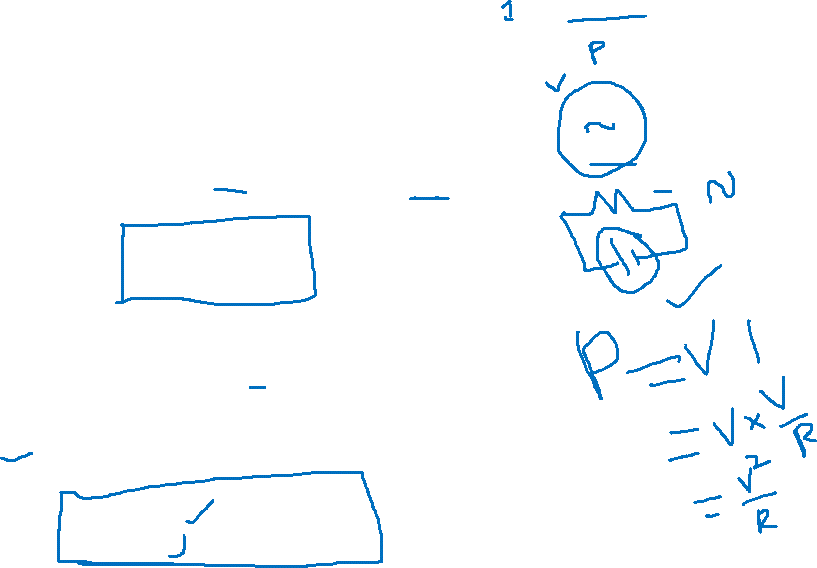 1
P
~
N
P = V I
= V × V/R
= V²/R